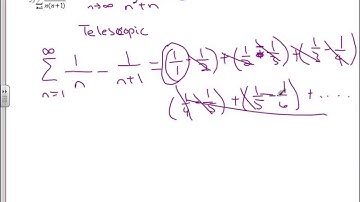 n(n+1) n→∞ n²+n
Telescopic
∞
∑ 1/n - 1/(n+1) = (1/1 - 1/2) + (1/2 - 1/3) + (1/3 - 1/4)
n=1
(1/4 - 1/5) + (1/5 - 1/6) + ....